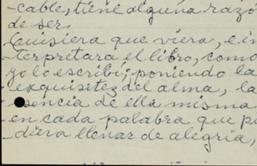 -cable, tiene alguna razó
de ser.
Quisiera que viera, e in
terpretara el libro, como
yo lo escribí; poniendo la
exquisitez del alma, la
esencia de ella misma
en cada palabra que pu
diera llenar de alegría,